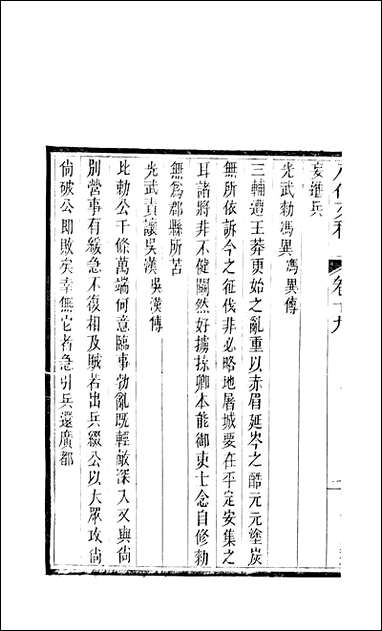 八代文粹 卷十九
妄進兵
光武勑馮異 馮異傳
三輔遭王莽更始之亂重以赤眉延岑之酷元元塗炭
無所依訴今之征伐非必略地屠城要在平定安集之
耳諸將非不健鬭然好擄掠卿本能御吏士念自修勑
無爲郡縣所苦
光武責讓吳漢 吳漢傳
比勑公千條萬端何意臨事勃亂既輕敵深入又與尚
別營事有緩急不復相及賊若出兵綴公以大眾攻尚
尚破公即敗矣幸無它者急引兵還廣都